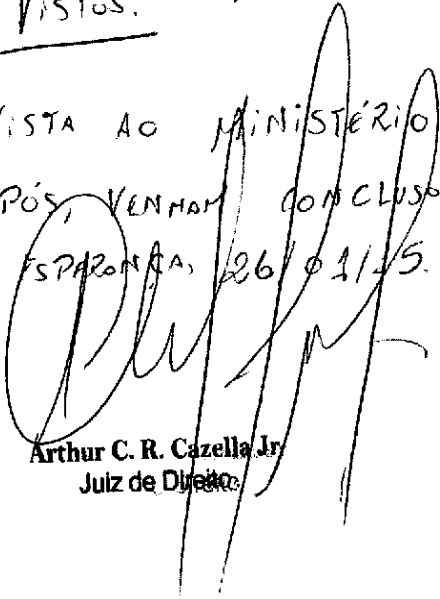 VISTOS.
VISTA AO MINISTÉRIO
PÓS, VENHAM CONCLUSO
ESPERANÇA, 26/01/15.
Arthur C. R. Cazella Jr
Juiz de Direito